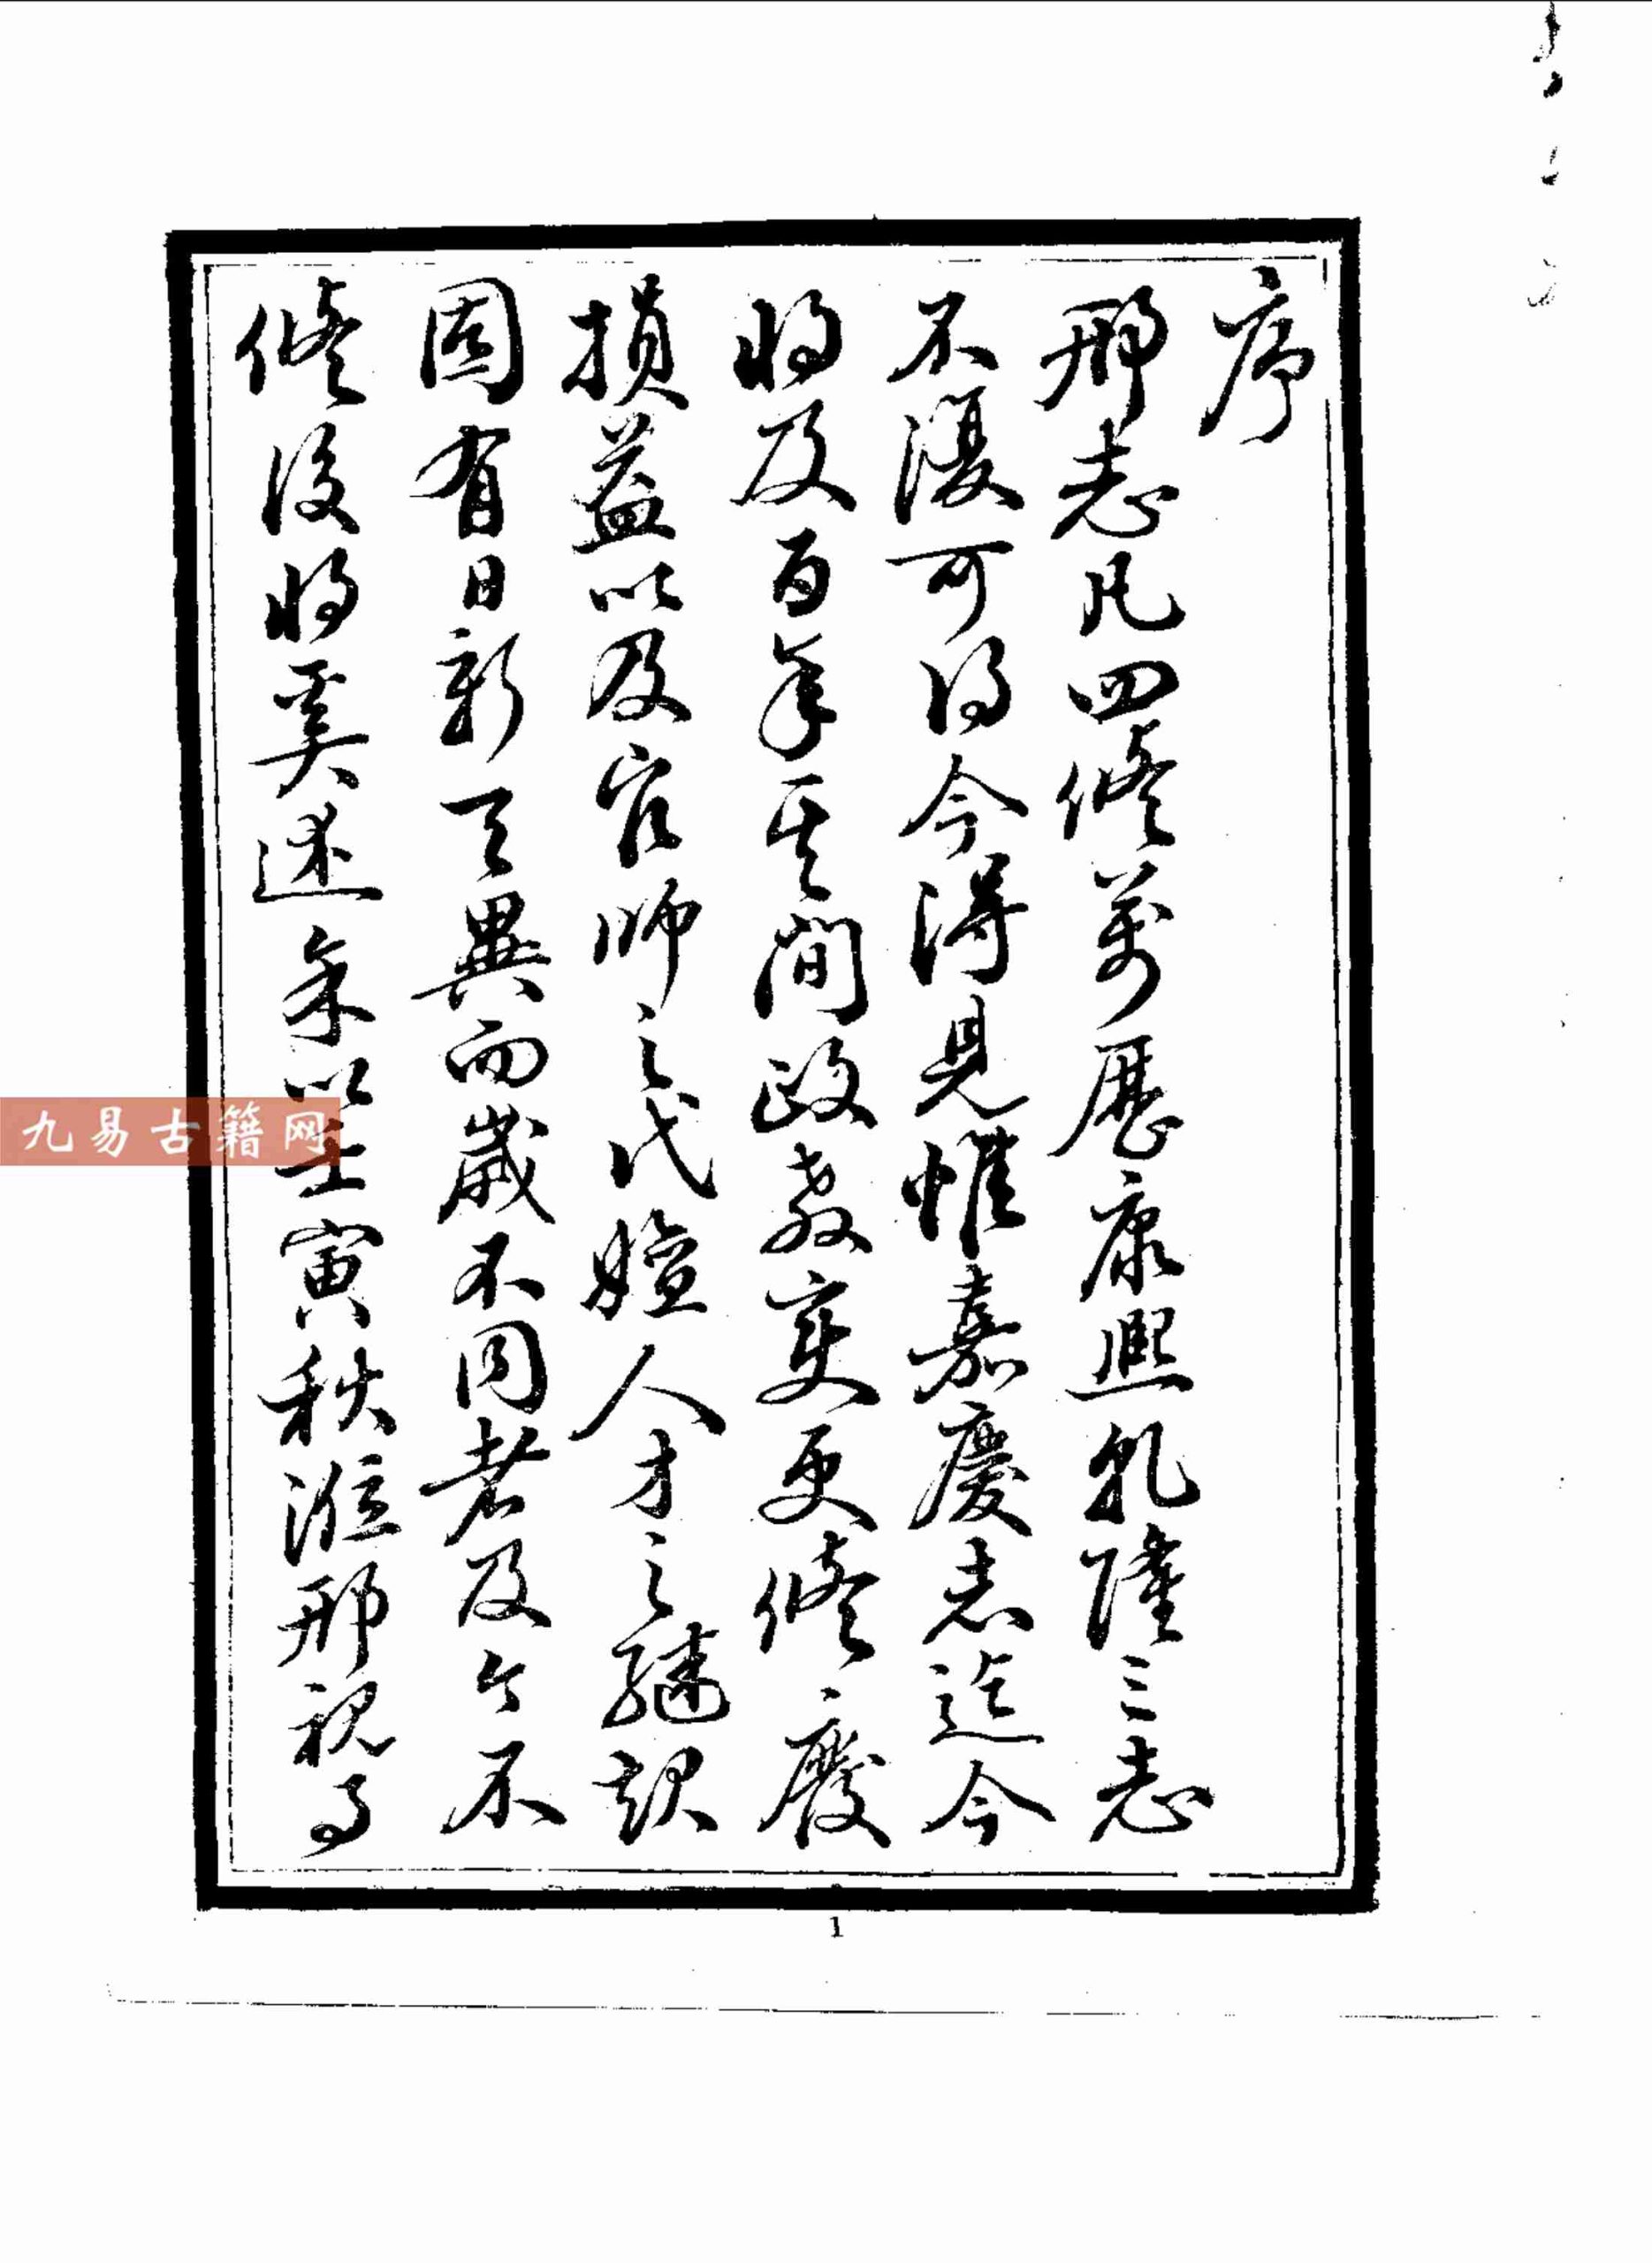 序
邢志凡四修萬歷康熙乹隆三志
不復可得今得見惟嘉慶志迄今
將及百年其間政教變更修廢
損益以及官師之代嬗人才之繼起
固有日新月異而歲不同者及今不
修後將奚述余以壬寅秋涖邢視事
九易古籍网
1